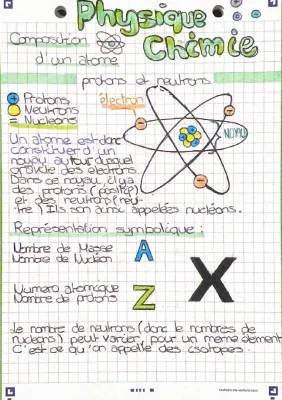 Physique
Chimie
Composition
d'un atome
protons et neutrons
Protons
Neutrons
Nucléons
électron
NOYAU
Un atome est donc
constituer d'un
noyau autour duquel
gravite des électrons.
Dans ce noyau, il y a
des protons (positifs)
et des neutrons (neu-
tre) Ils son aussi appelées nucléons.
Représentation symbolique :
Nombre de Masse
Nombre de Nucléon
A
X
Numero atomique
Nombre de protons
Z
Le nombre de neutrons (donc le nombres de
nucléons) peut varier, pour un meme élement
C'est ce qu'on appelle des isotopes.